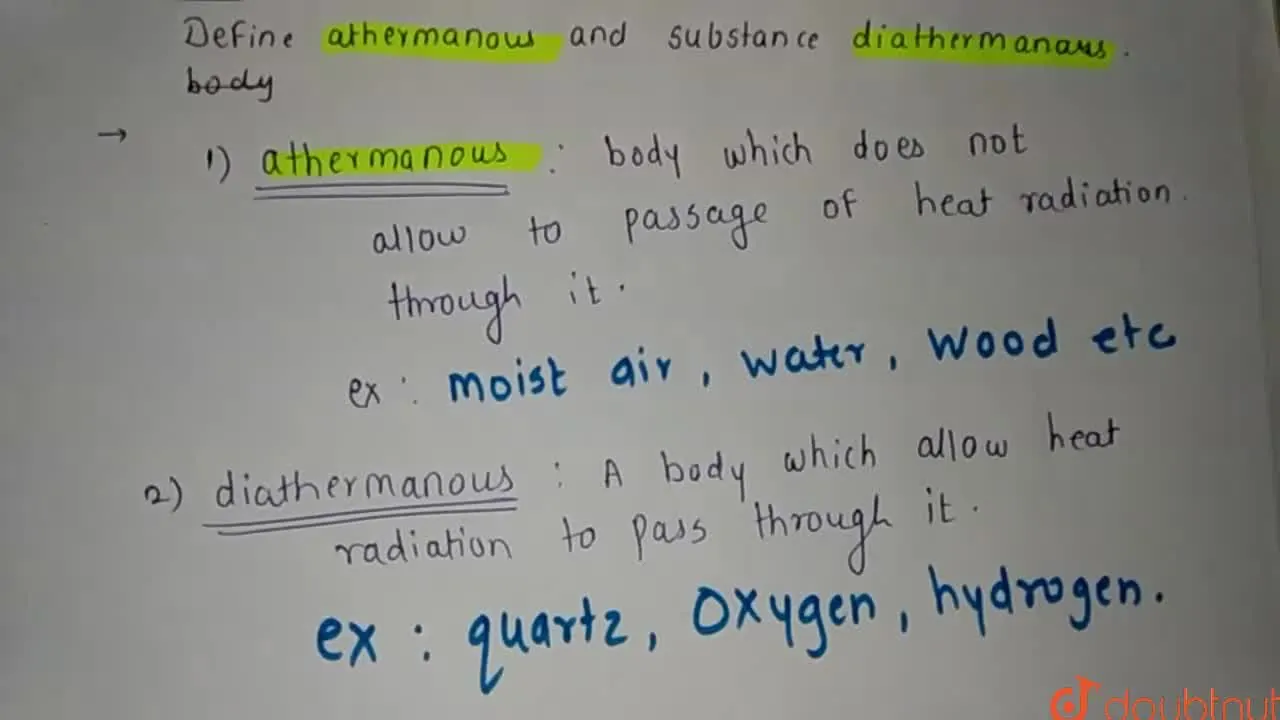 Define athermanous and substance diathermanous.
body
→
1) athermanous : body which does not
allow to passage of heat radiation.
through it.
ex : moist air, water, wood etc
2) diathermanous : A body which allow heat
radiation to pass through it.
ex : quartz, oxygen, hydrogen.
doubtnut